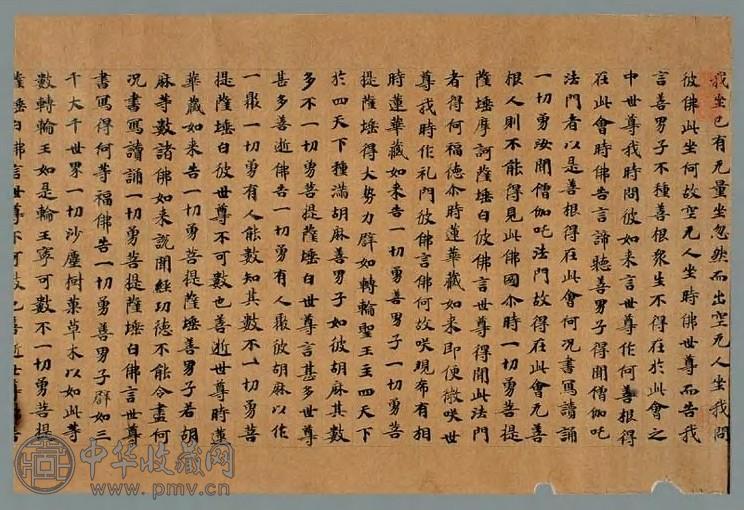 我坐已有无量坐忽然而出空无人坐我問
彼佛此坐何故空无人坐時佛世尊而告我
言善男子不種善根衆生不得在於此會之
中世尊我時問彼如来言世尊作何善根得
在此會時佛告言諦聽善男子得聞僧伽吒
法門者以是善根得在此會何况書寫讀誦
一切勇汝聞僧伽吒法門故得在此會无善
根人則不能得見此佛國尒時一切勇菩提
薩埵摩訶薩埵白彼佛言世尊得聞此法門
者得何福德尒時蓮華藏如来即便微咲世
尊我時作礼問彼佛言佛何故咲現希有相
時蓮華藏如来告一切勇善男子一切勇菩
提薩埵得大勢力辟如轉輪聖王主四天下
於四天下種滿胡麻善男子如彼胡麻其數
多不一切勇菩提薩埵白世尊言甚多世尊
甚多善逝佛告一切勇有人聚彼胡麻以作
一聚一切勇有人能數知其數不一切勇菩
提薩埵白彼世尊不可數也善逝世尊時蓮
華藏如来告一切勇菩提薩埵善男子若胡
麻等數諸佛如来說聞經功德不能令盡何
况書寫讀誦一切勇菩提薩埵白佛言世尊
書寫得何等福佛告一切勇善男子辟如三
千大千世界一切沙塵樹葉草木以如此等
數轉輪王如是輪王寧可數不一切勇菩提
薩埵白佛言世尊不可數也善逝世尊
中华收藏网
www.pmv.cn